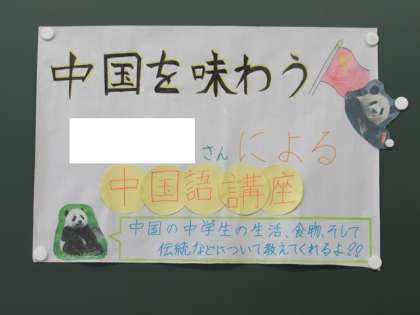 中国を味わう
さんによる
中国語講座
中国の中学生の生活、食物、そして
伝統などについて教えてくれるよ!!